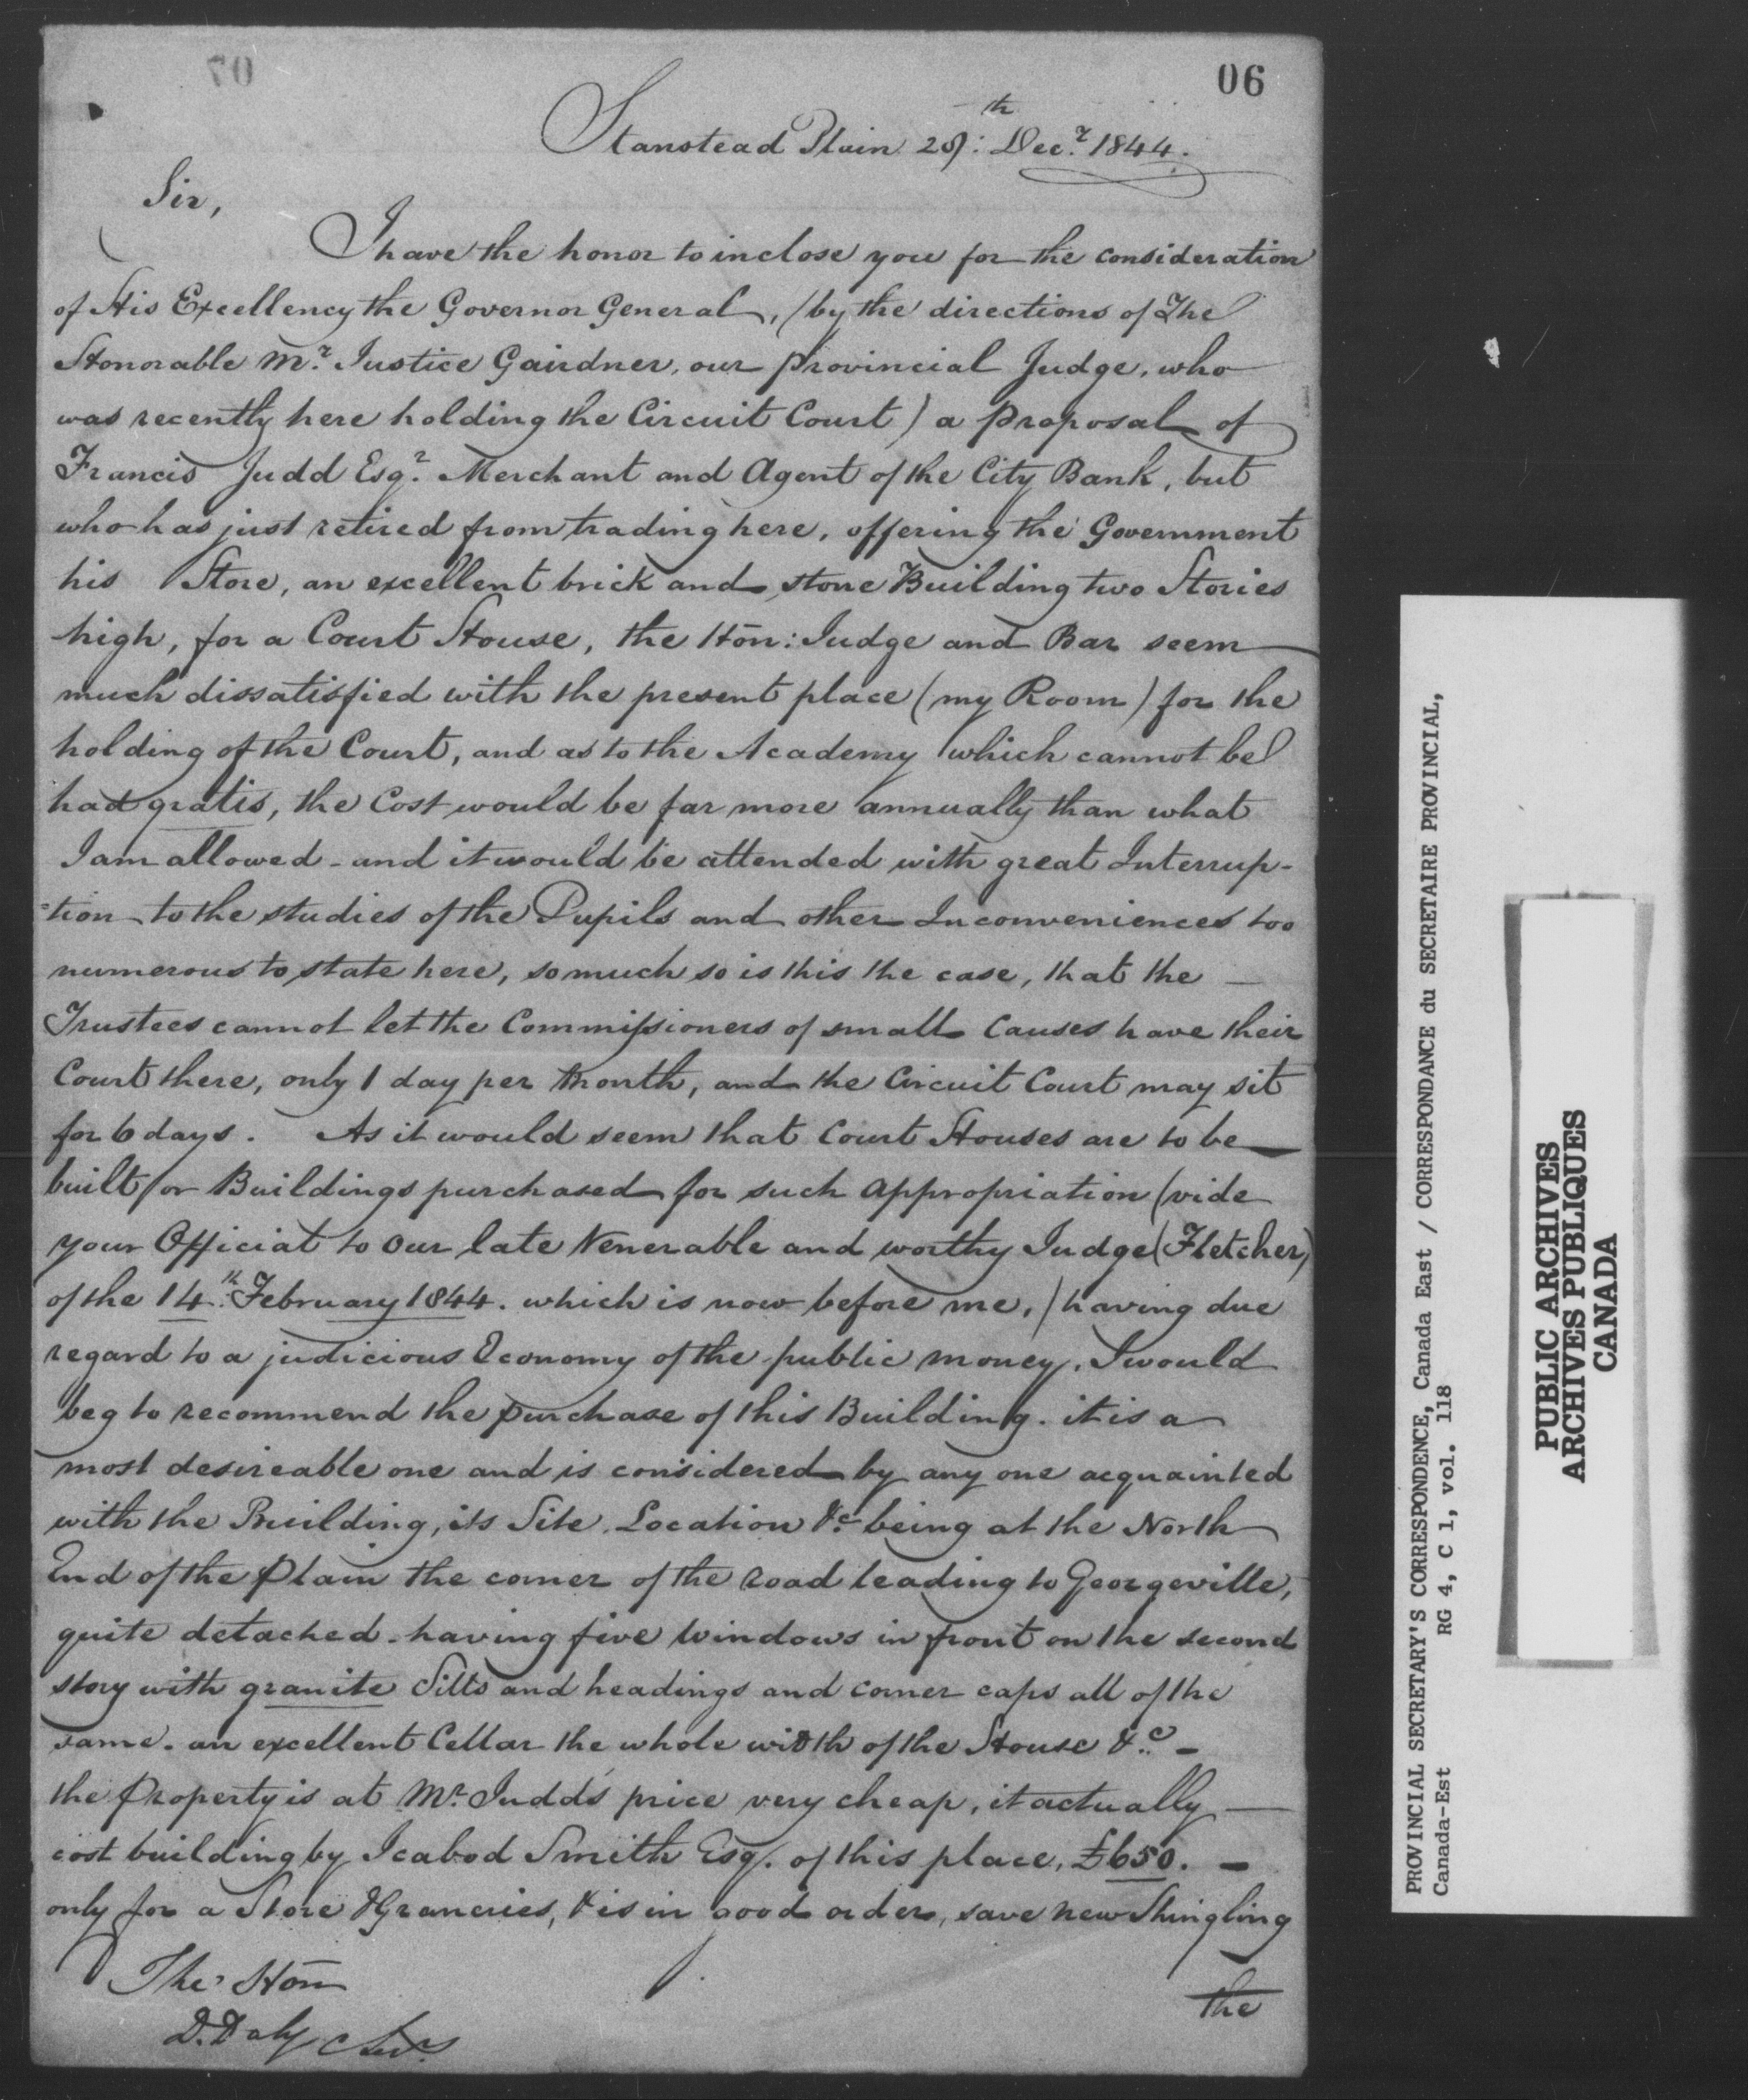 06
70
Stanstead Plain 29:th Decr. 1844.
Sir,
I have the honor to inclose you for the consideration
of His Excellency the Governor General, (by the directions of The
Honorable Mr. Justice Gairdner, our Provincial Judge, who
was recently here holding the Circuit Court) a Proposal of
Francis Judd Esqr. Merchant and Agent of the City Bank, but
who has just retired from trading here, offering the Government
his Store, an excellent brick and stone Building two Stories
high, for a Court House, the Hon: Judge and Bar seem
much dissatisfied with the present place (my Room) for the
holding of the Court, and as to the Academy which cannot be
had gratis, the Cost would be far more annually than what
I am allowed - and it would be attended with great Interrup-
-tion to the studies of the Pupils and other Inconveniences too
numerous to state here, so much so is this the case, that the
Trustees cannot let the Commissioners of small Causes have their
Court there, only 1 day per Month, and the Circuit Court may sit
for 6 days. As it would seem that Court Houses are to be
built or Buildings purchased for such appropriation (vide
your Official to our late Venerable and worthy Judge (Fletcher)
of the 14th. February 1844. which is now before me,) having due
regard to a judicious Economy of the public money, I would
beg to recommend the purchase of this Building. it is a
most desireable one and is considered by any one acquainted
with the Building, its Site, Location &c being at the North
End of the Plain the corner of the road leading to Georgeville,
quite detached - having five Windows in front on the second
story with granite Sills and headings and corner caps all of the
same. an excellent Cellar the whole width of the House &c. -
the Property is at Mr. Judd's price very cheap, it actually
cost building by Icabod Smith Esq. of this place, £650. -
only for a Store & Graneries, & is in good order, save new Shingling
the
The Hon
D. Daly
PROVINCIAL SECRETARY'S CORRESPONDENCE, Canada East / CORRESPONDANCE du SECRETAIRE PROVINCIAL,
Canada-Est RG 4, C 1, vol. 118
PUBLIC ARCHIVES
ARCHIVES PUBLIQUES
CANADA